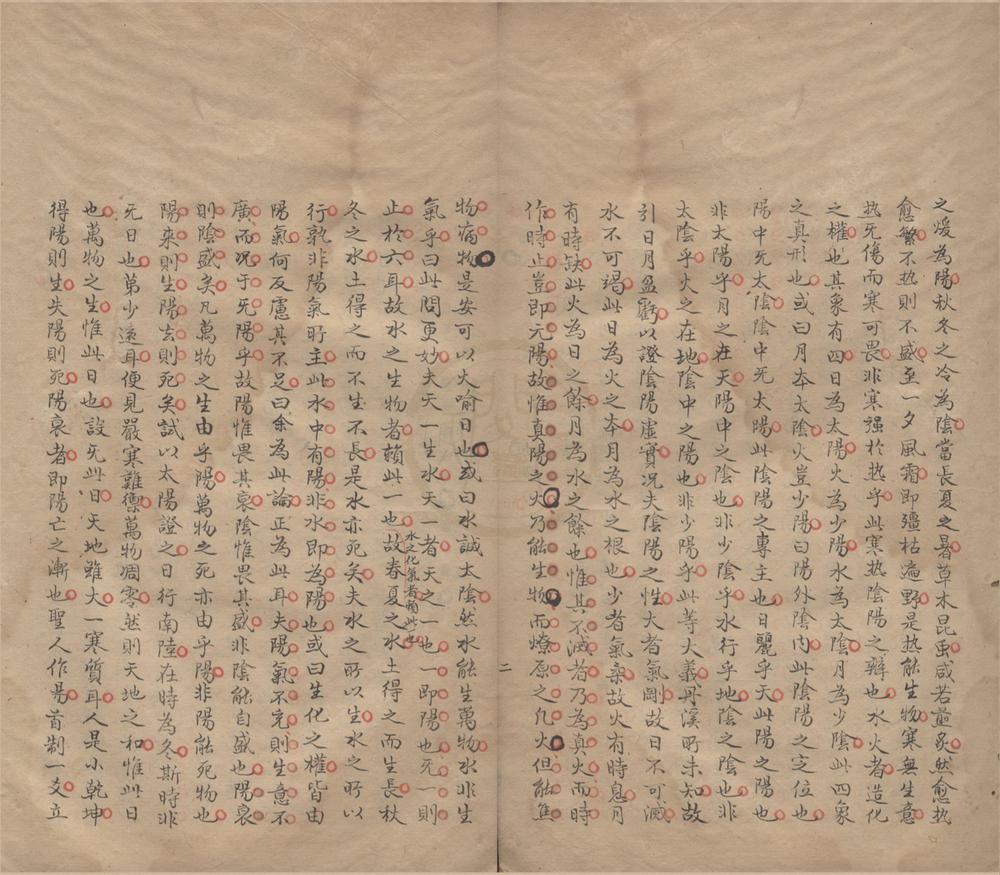 之煖為陽秋冬之冷為陰當長夏之暑草木昆虫咸若煎炙然愈热
愈繁不热則不盛至一夕風霜即殭枯遍野是热能生物寒無生意
热旡伤而寒可畏非寒强於热乎此寒热陰陽之辯也水火者造化
之權也其象有四日為太陽火為少陽水為太陰月為少陰此四象
之真形也或曰月夲太陰火豈少陽曰陽外陰内此陰陽之定位也
陽中旡太陰陰中旡太陽此陰陽之專主也日麗乎天此陽之陽也
非太陽乎月之在天陽中之陰也非少陰乎水行乎地陰之陰也非
太陰乎火之在地陰中之陽也非少陽乎此等大義丹溪所未知故
引日月盈虧以證陰陽虛實况夫陰陽之性大者氣剛故日不可滅
水不可竭此日為火之夲月為水之根也少者氣柔故火有時息月
有時缺此火為日之餘月為水之餘也惟其不滅者乃為真火而時
作時止豈即元陽故惟真陽之火乃能生物而燎原之凢火但能焦
物病物是安可以火喻日也或曰水誠太陰然水能生萬物水非生
氣乎曰此問更妙夫天一生水天一者天之一也一即陽也旡一則
止於六耳故水之生物者賴此一也水之化氣者亦此一也故春夏之水土得之而生長秋
冬之水土得之而不生不長是水亦死矣夫水之所以生水之所以
行孰非陽氣所主此水中有陽非水即為陽也或曰生化之權皆由
陽氣何反慮其不足曰余為此論正為此耳夫陽氣不充則生意不
廣而况于旡陽乎故陽惟畏其衰陰惟畏其盛非陰能自盛也陽衰
則陰盛矣凡萬物之生由乎陽萬物之死亦由乎陽非陽能死物也
陽来則生陽去則死矣試以太陽證之日行南陸在時為冬斯時非
旡日也第少遠耳便見嚴寒難禦萬物凋零然則天地之和惟此日
也萬物之生惟此日也設旡此日天地雖大一寒質耳人是小乾坤
得陽則生失陽則死陽衰者即陽亡之漸也聖人作易首制一爻立
二